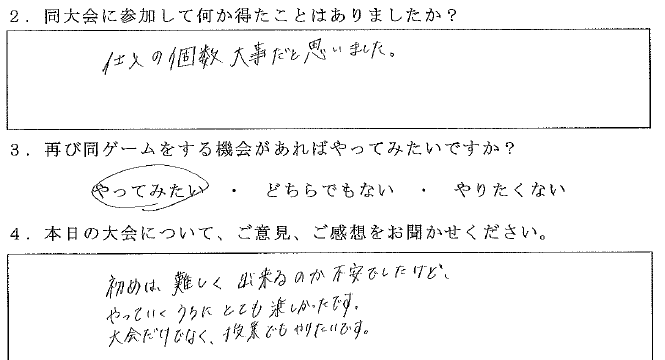 2．同大会に参加して何か得たことはありましたか？
仕入の個数大事だと思いました。
3．再び同ゲームをする機会があればやってみたいですか？
やってみたい ・ どちらでもない ・ やりたくない
4．本日の大会について、ご意見、ご感想をお聞かせください。
初めは、難しく出来るのか不安でしたけど、
やっていくうちにとても楽しかったです。
大会だけでなく、授業でもやりたいです。